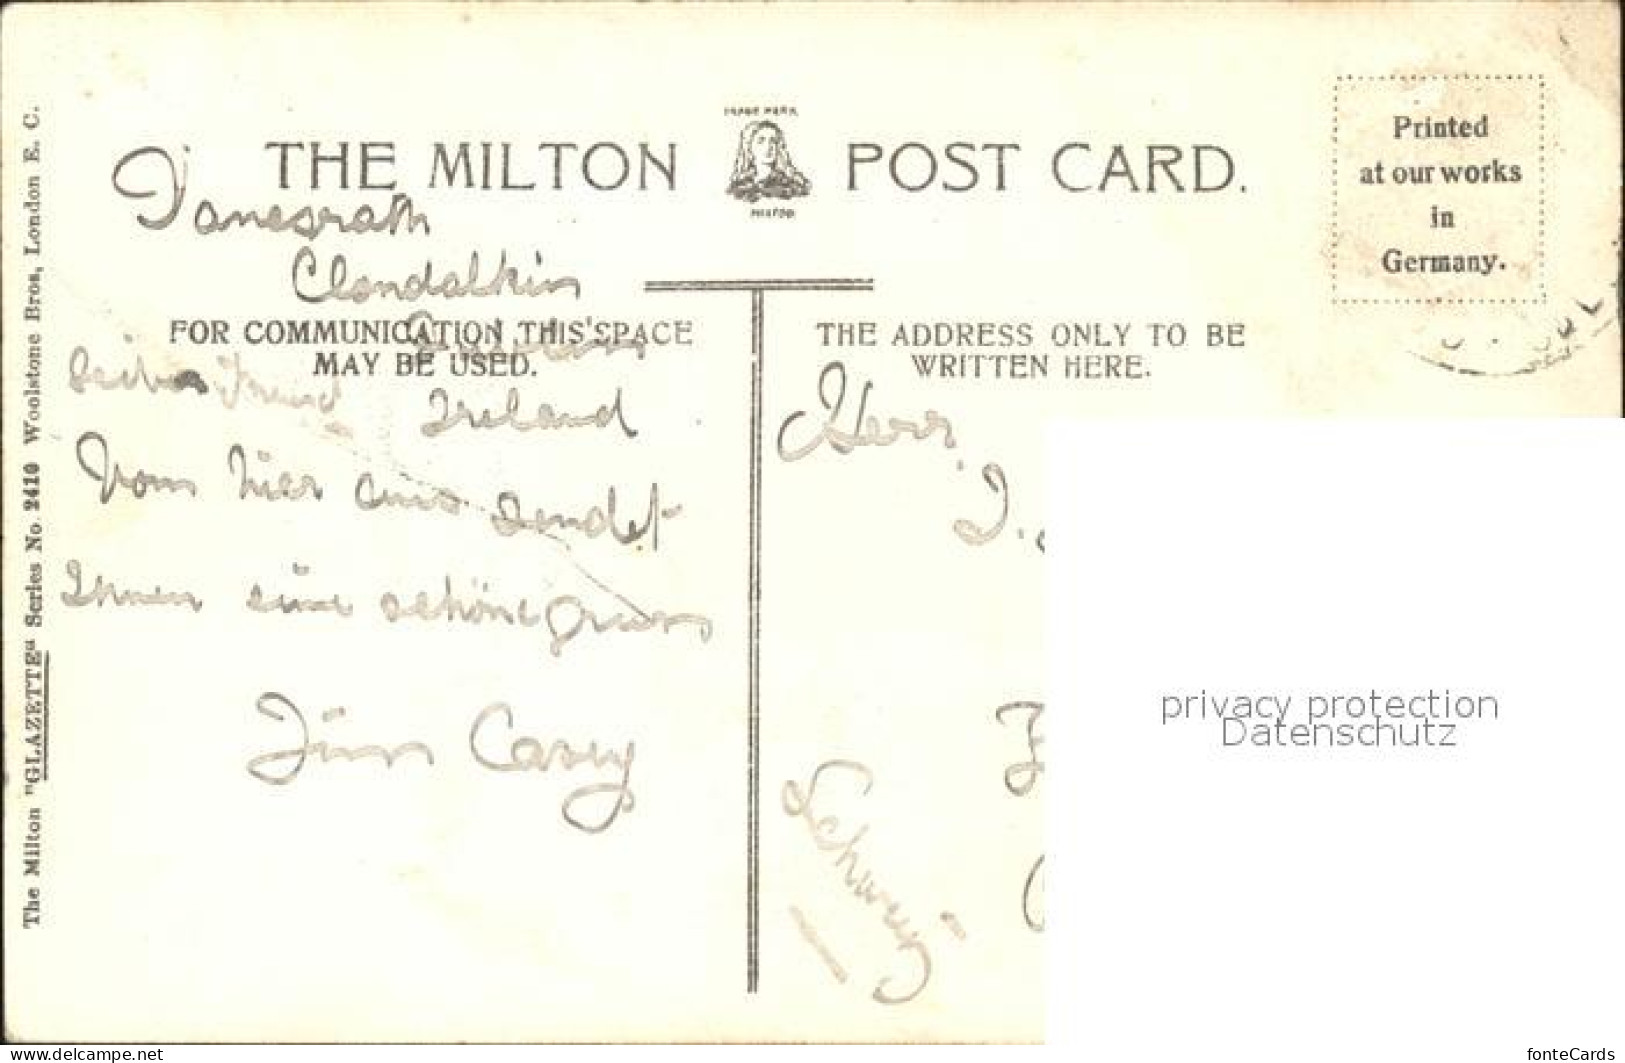 TRADE MARK
THE MILTON POST CARD.
MILTON
Printed
at our works
in
Germany.
Clondalkin
FOR COMMUNICATION THIS SPACE
MAY BE USED.
Ireland
Vom hier aus sendet
Ihnen eine schöne gruss
Jim Casey
THE ADDRESS ONLY TO BE
WRITTEN HERE.
Herr
J.
Schweiz
The Milton "GLAZETTE" Series No. 2410 Woolstone Bros, London E. C.
privacy protection
Datenschutz
www.delcampe.net
fonteCards